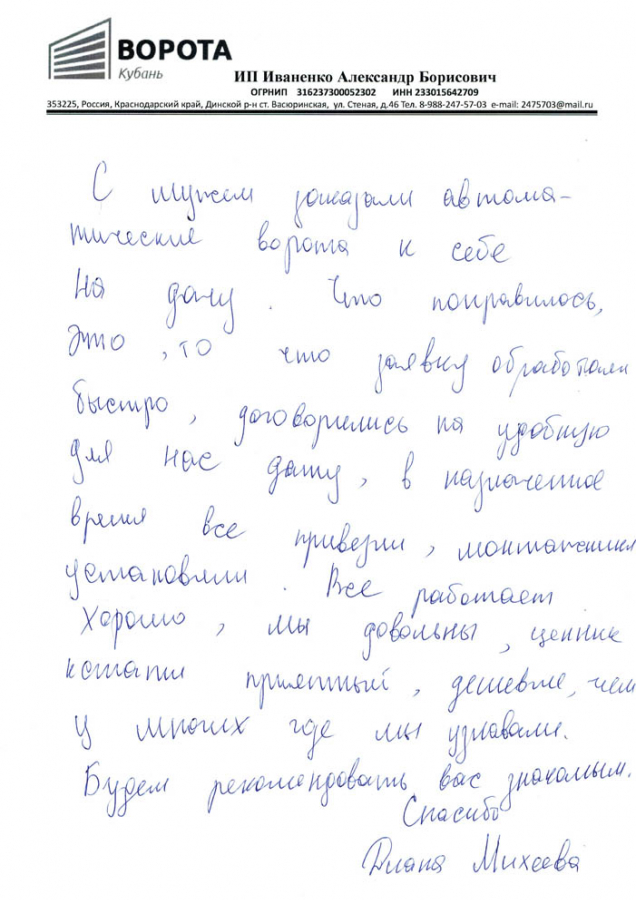 ВОРОТА
Кубань
ИП Иваненко Александр Борисович
ОГРНИП 316237300052302 ИНН 233015642709
353225, Россия, Краснодарский край, Динской р-н ст. Васюринская, ул. Степная, д.46 Тел. 8-988-247-57-03 e-mail: 2475703@mail.ru
С мужем заказали автома-
тические ворота к себе
на дачу. Что понравилось,
это, то что заявку обработали
быстро, договорились на удобную
для нас дату, в назначенное
время все привезли, монтажники
установили. Все работает
хорошо, мы довольны, ценник
кстати приятный, дешевле, чем
у многих где мы узнавали.
Будем рекомендовать вас знакомым.
Спасибо
Диана Михеева